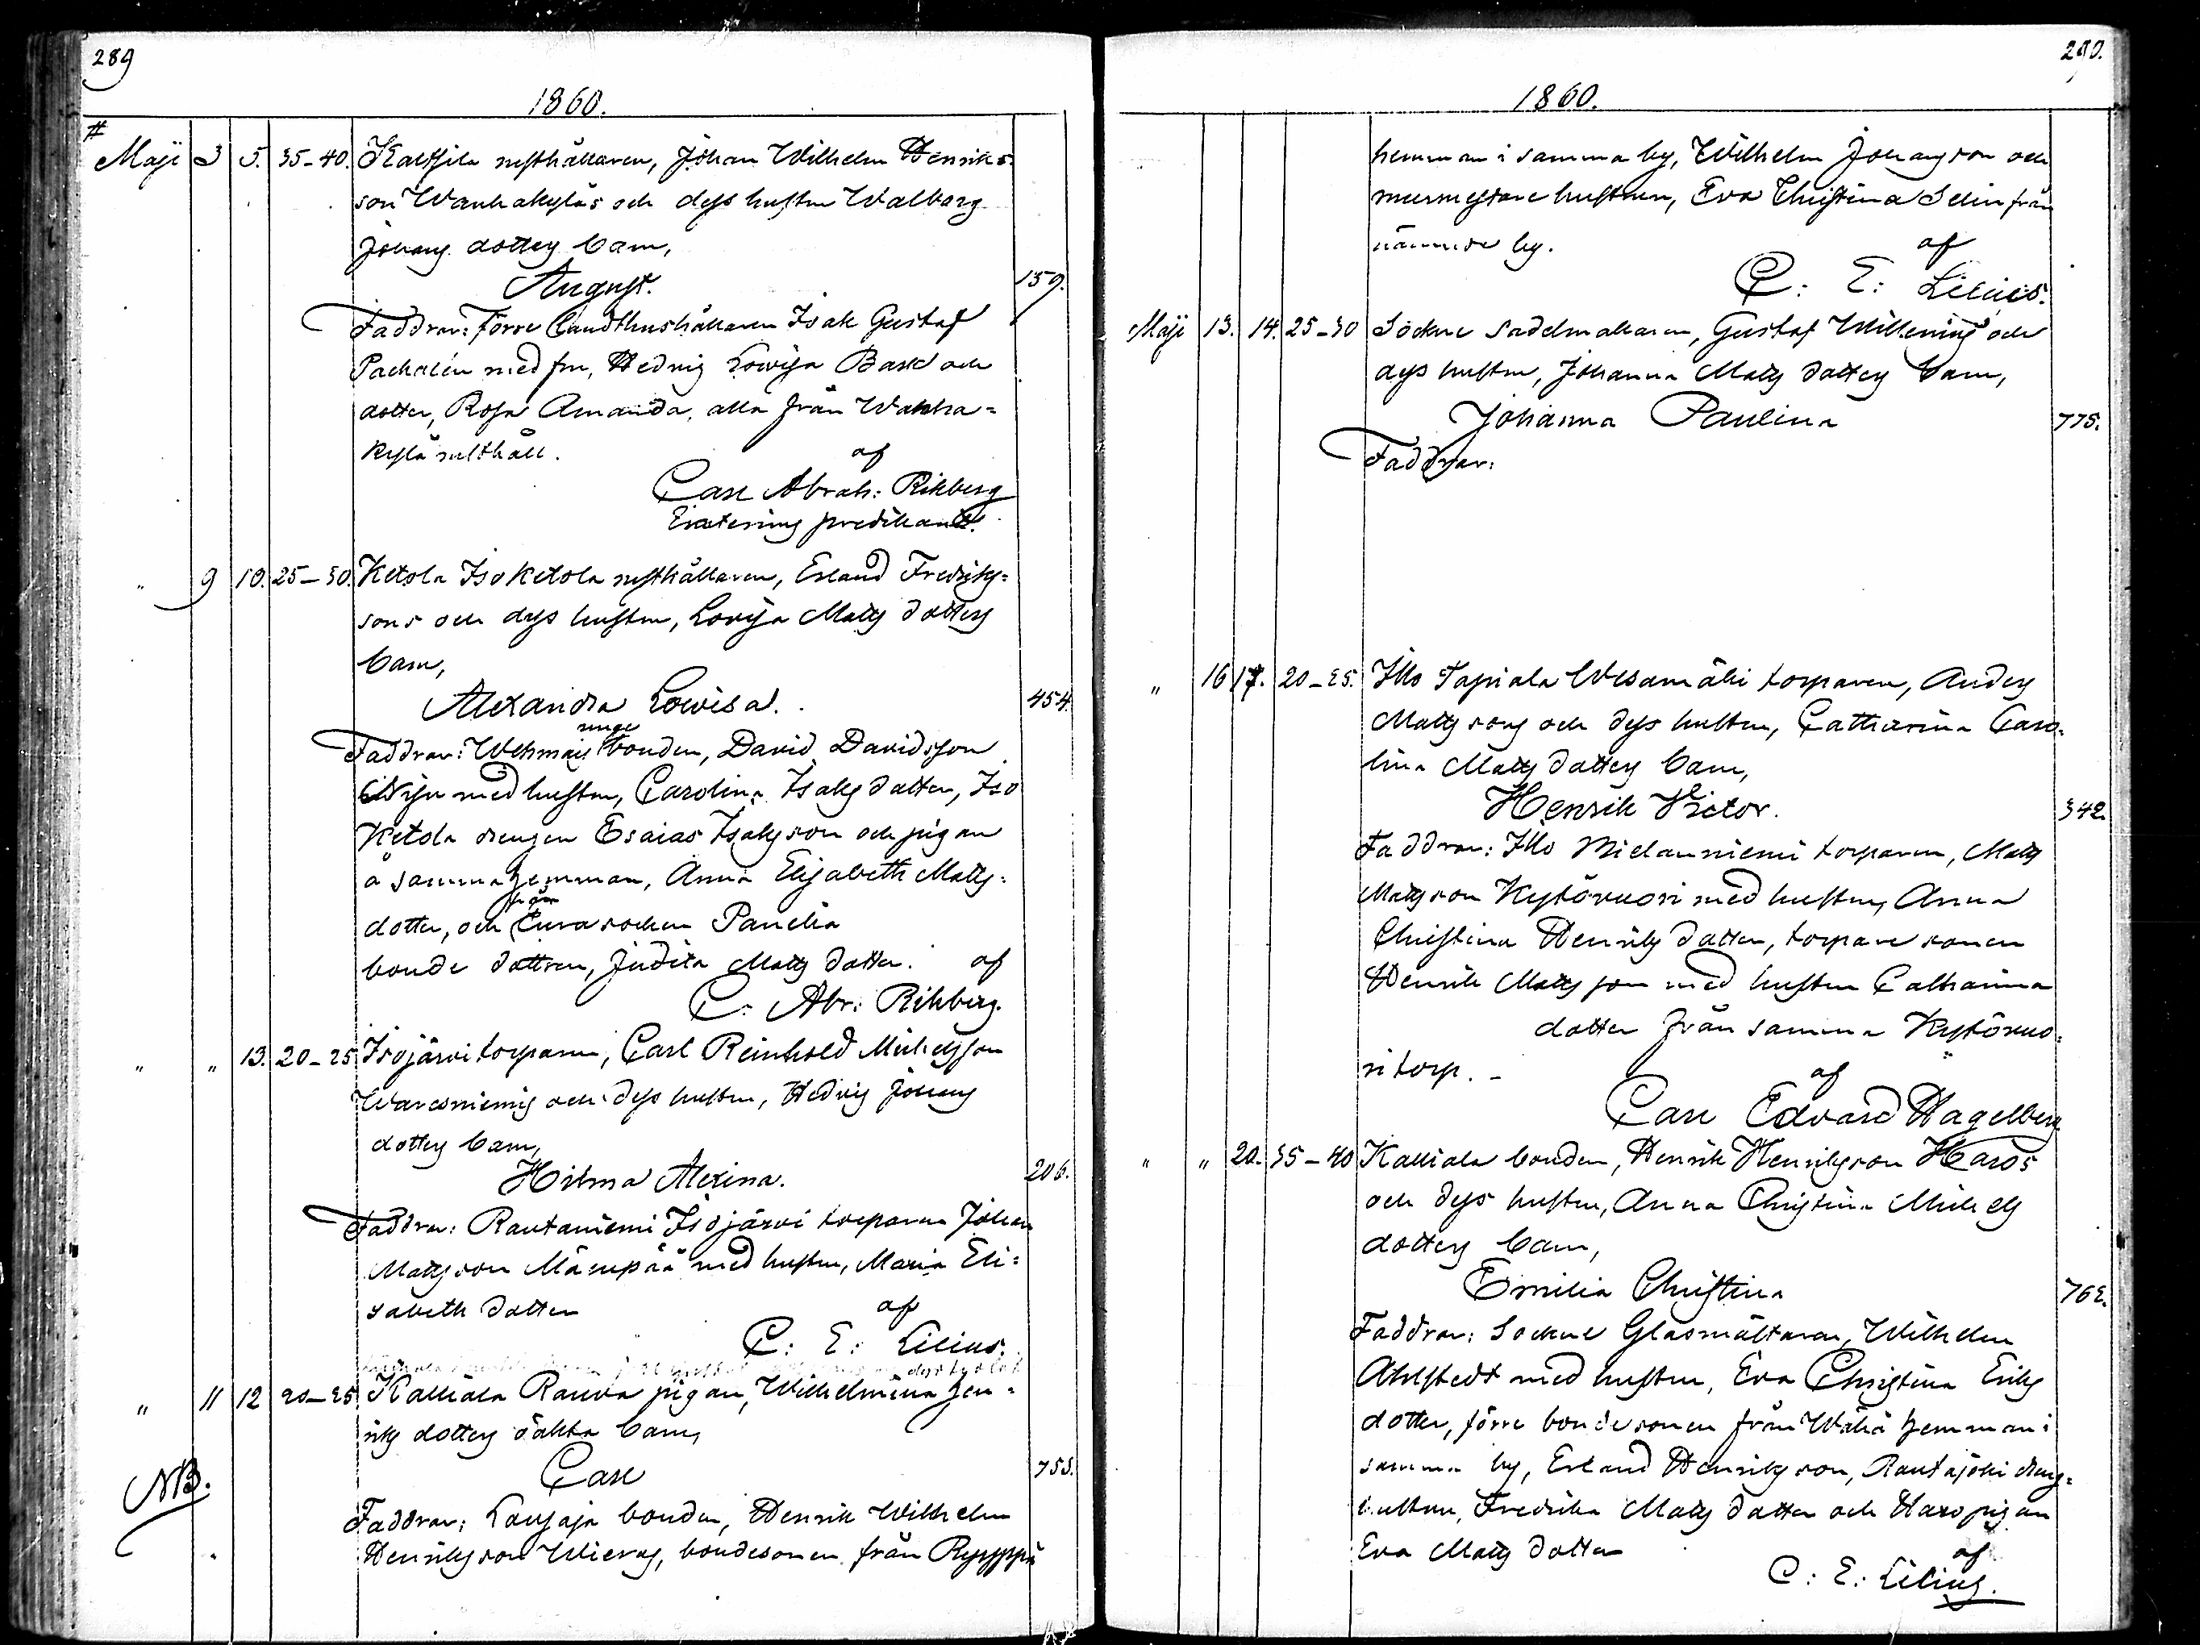 289
1860.
Maji 3 5. 35-40. Kallfila rusthållaren, Johan Wilhelm Henriks
son Wanhakyläs och dess hustru Walborg
Johans dotters barn,
August. 159.
Faddrar: Förre Landthushållaren Isak Gustaf
Pachalén med fru, Hedvig Lovisa Bask och
dotter, Rosa Amanda, alla från Wanha=
kylä rusthåll. af
Carl Abrah: Rikberg
predikant.
" 9 10. 25-30. Ketola Iso Ketola rusthållaren, Erland Fredriks=
sons och dess hustru, Lovisa Matts dotters
barn,
Alexandra Lowisa. 454.
Faddrar: bonden, David Davidsson
med hustru, Carolina Isaks dotter, Iso
Ketola drengen Esaias Isaksson och pigan
å samma hemman, Anna Elisabeth Matts=
dotter, och från Eura socken Panelia
bonde dottren, Judita Matts dotter. af
C: Abr: Rikberg.
" " 13. 20-25 Isojärvi torparen, Carl Reinhold Michelsson
Waresniemis och dess hustru, Hedvig Johans
dotters barn,
Hilma Alexina. 206.
Faddrar: Rautaniemi Isojärvi torparen Johan
Mattsson Mäenpää med hustru, Maria Eli=
sabeth dotter af
C: E: Lilius.
" 11 12 20-25 Kalliala Rauva pigan, Wilhelmina Hen=
riks dotters oäkta barn,
NB. Carl 755.
Faddrar: bonden, Henrik Wilhelm
Henriksson Wieras, bondesonen från
290.
1860.
hemman i samma by, Wilhelm Johansson och
murmestare hustrun, Eva Christina Selin från
nämnde by. af
C: E: Lilius.
Maji 13. 14. 25-30 Sockne sadelmakaren, Gustaf Willenius och
dess hustru, Johanna Matts dotters barn,
Johanna Paulina 775.
Faddrar:
" 16 17. 20-25. Illo Tapiala Wesamäki torparen, Anders
Mattsons och dess hustru, Catharina Caro=
lina Matts dotters barn,
Henrik Victor. 342.
Faddrar: Illo Mielanniemi torparen, Matts
Mattsson Kytövuori med hustru, Anna
Christina Henriks dotter, torpare sonen
Henrik Mattsson med hustru Catharina
dotter från samma Kytövuo=
ri torp. - af
Carl Edvard Hagelberg
" " 20. 35-40 Kalliala bonden, Henrik Henriksson Haros
och dess hustru, Anna Christina Michels
dotters barn,
Emilia Christina 762.
Faddrar: Sockne Glasmästaren, Wilhelm
Ahlstedt med hustru, Eva Christina Eriks
dotter, förre bondesonen från Wähä hemman i
samma by, Erland Henriksson, Rautajoki dreng=
hustrun, Fredrika Matts dotter och Haro pigan
Eva Matts dotter af
C: E: Lilius.